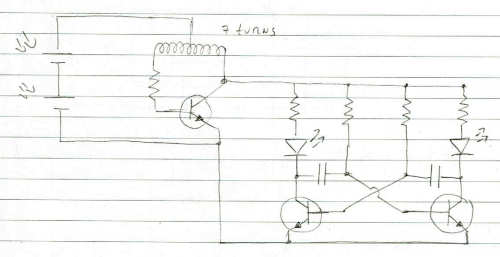 7 turns